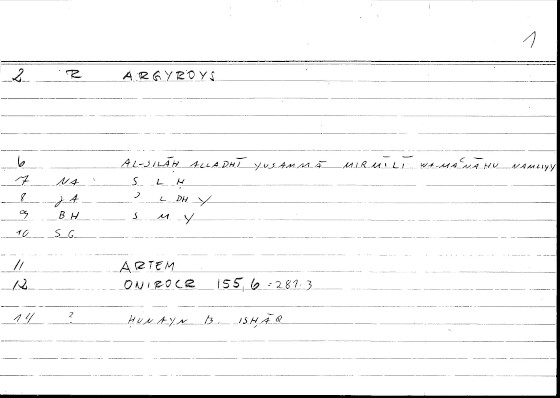 1
2 R ARGYROYS
6 AL-SILĀḤ ALLADHĪ YUSAMMĀ MIRMĪLĪ WA-MAʿNĀHU NAMLIYY
7 NA S L Ḥ
8 JA ʾ L DH Y
9 BH S M Y
10 SG
11 ARTEM
12 ONIROCR 155,6 = 287.3
14 ? ḤUNAYN B. ISḤĀQ